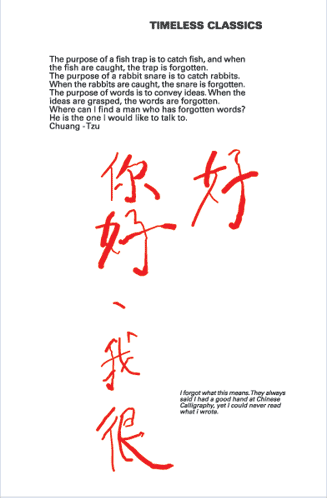 TIMELESS CLASSICS
The purpose of a fish trap is to catch fish, and when
the fish are caught, the trap is forgotten.
The purpose of a rabbit snare is to catch rabbits.
When the rabbits are caught, the snare is forgotten.
The purpose of words is to convey ideas. When the
ideas are grasped, the words are forgotten.
Where can I find a man who has forgotten words?
He is the one I would like to talk to.
Chuang -Tzu
你好、我很
好
I forgot what this means. They always
said I had a good hand at Chinese
Calligraphy, yet I could never read
what i wrote.